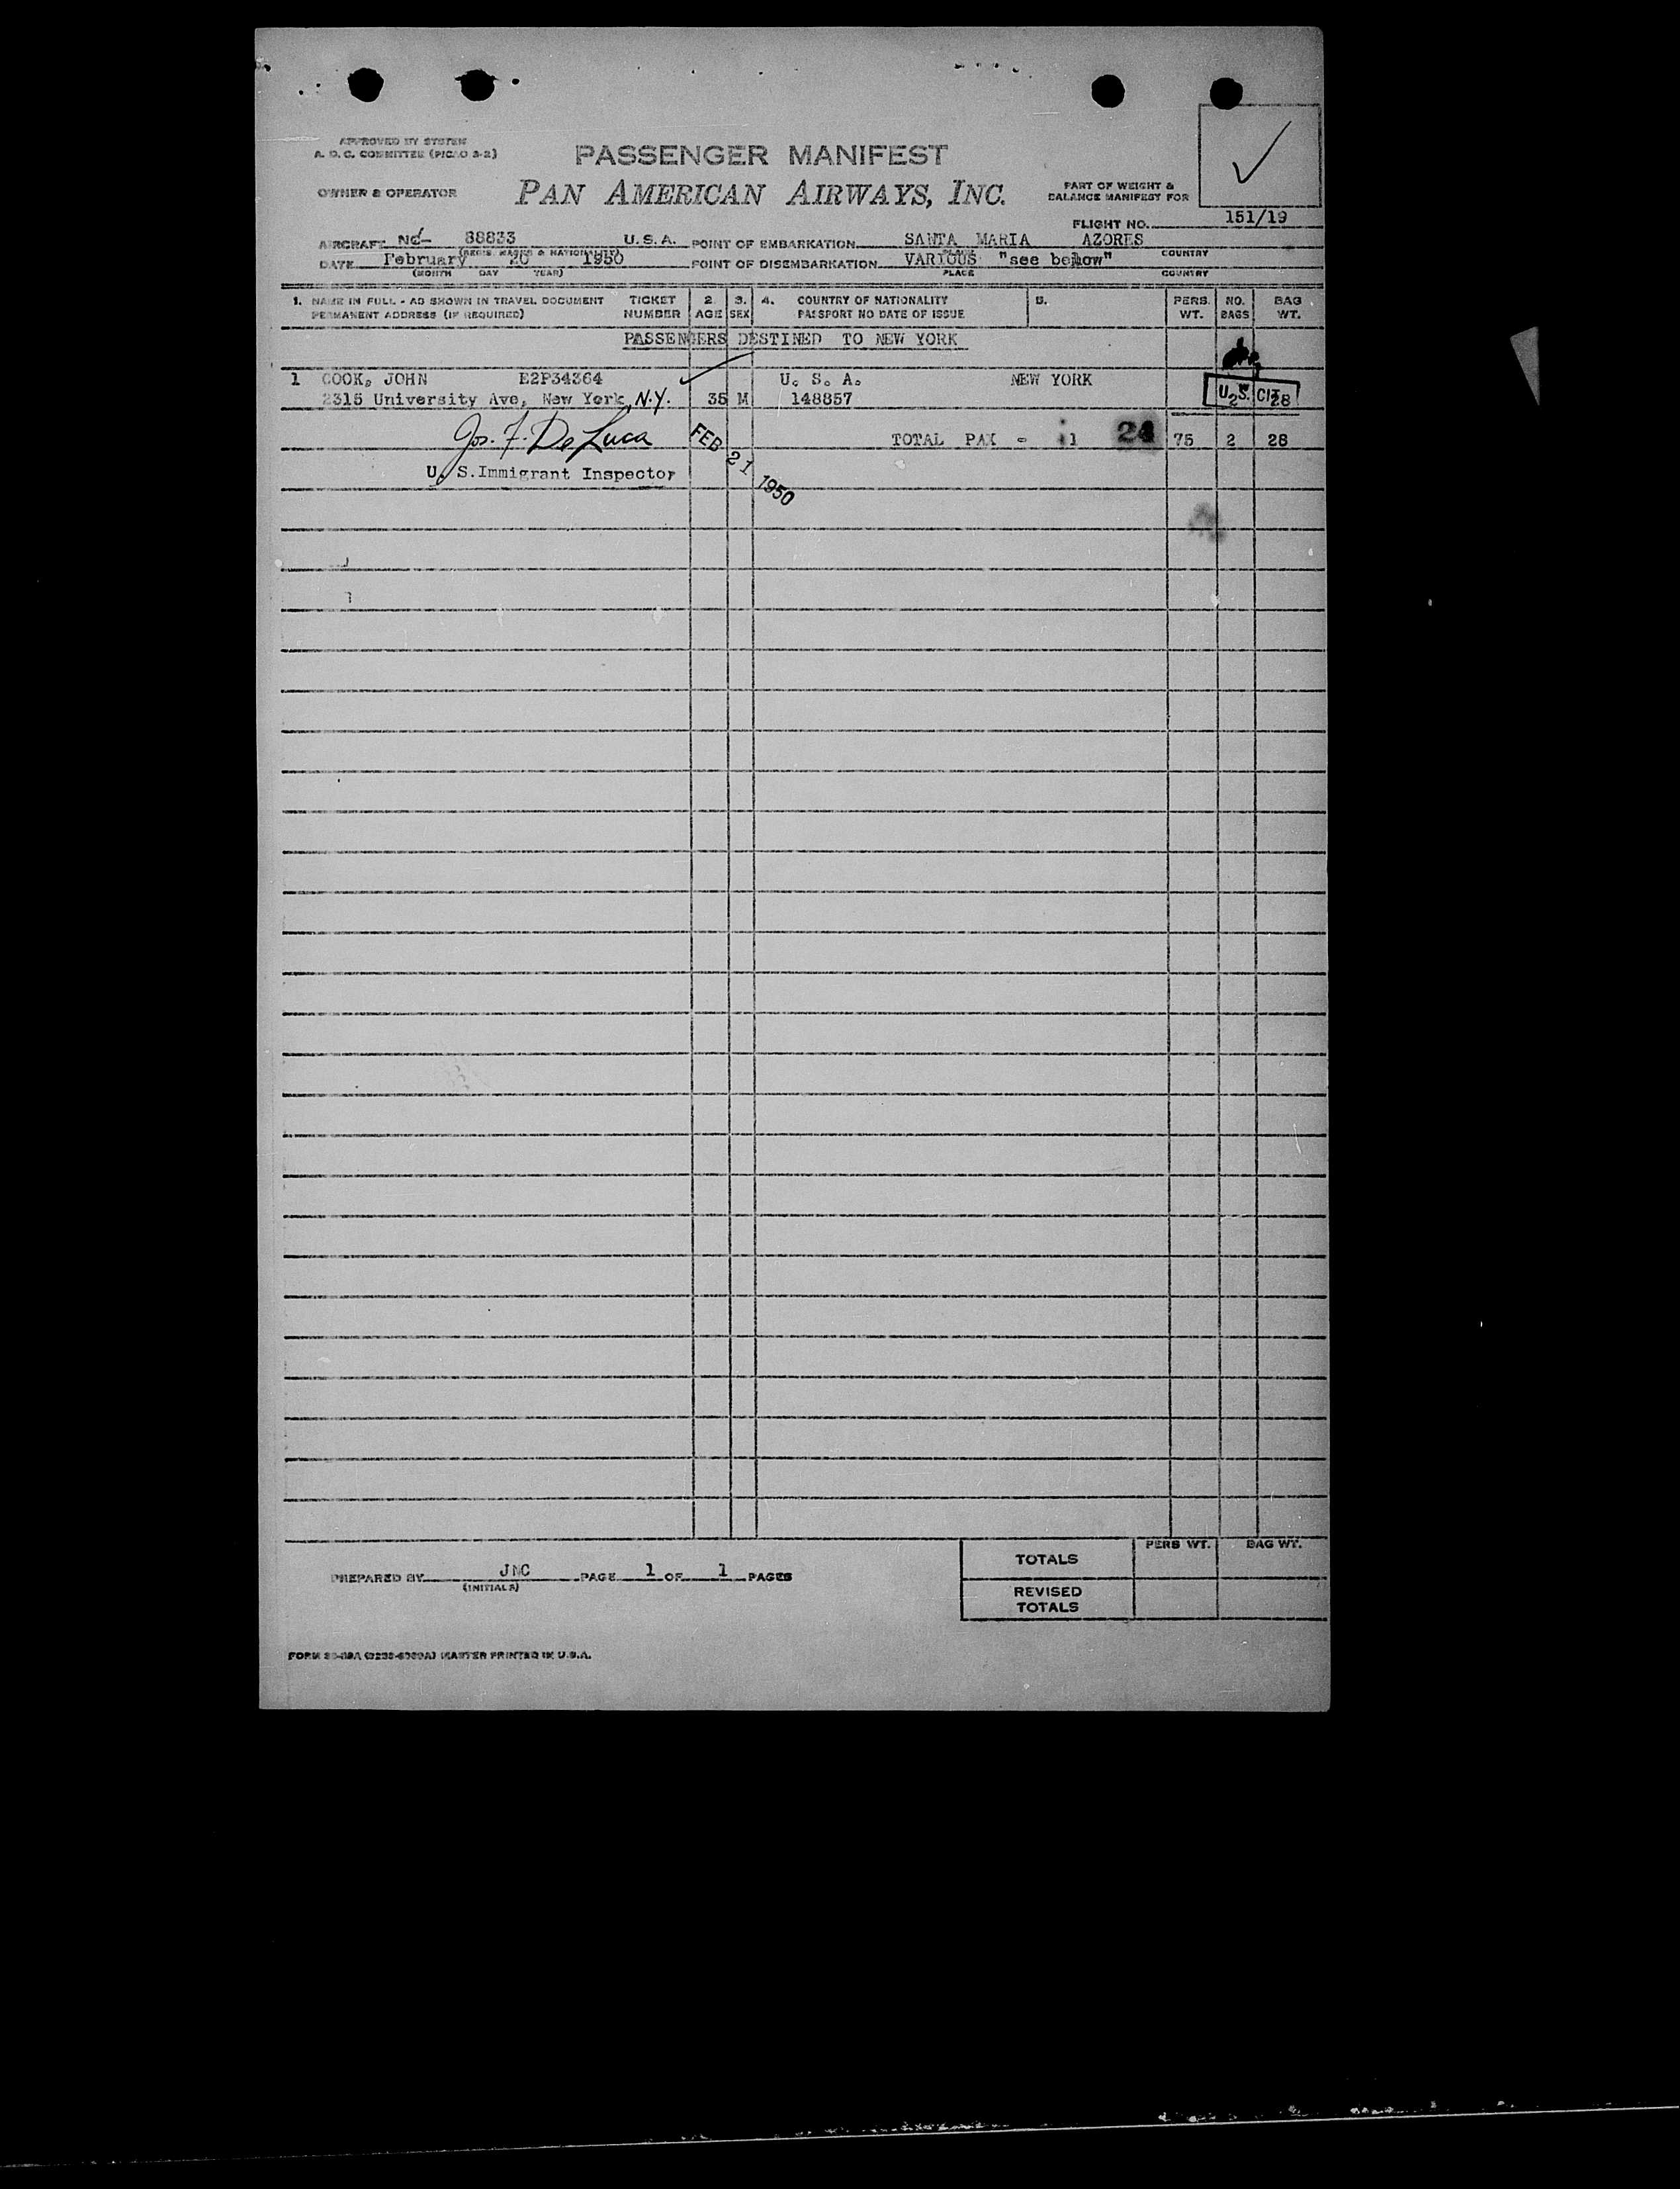 APPROVED BY SYSTEM
A. O. C. COMMITTEE (PICAO 3-2)
PASSENGER MANIFEST
OWNER & OPERATOR
PAN AMERICAN AIRWAYS, INC.
PART OF WEIGHT &
BALANCE MANIFEST FOR
FLIGHT NO. 151/19
AIRCRAFT NC- 88833 U.S.A. POINT OF EMBARKATION SANTA MARIA AZORES
(REGIS. MARKS & NATIONALITY) PLACE COUNTRY
DATE February 20 1950 POINT OF DISEMBARKATION VARIOUS "see below"
(MONTH DAY YEAR) PLACE COUNTRY
1. NAME IN FULL - AS SHOWN IN TRAVEL DOCUMENT TICKET 2. 3. 4. COUNTRY OF NATIONALITY 5. PERS. NO. BAG
PERMANENT ADDRESS (IF REQUIRED) NUMBER AGE SEX PASSPORT NO DATE OF ISSUE WT. BAGS WT.
PASSENGERS DESTINED TO NEW YORK
1 COOK, JOHN E2P34364 U. S. A. NEW YORK
2315 University Ave, New York, N.Y. 35 M 148857 U.S. CIT 2 28
Jos. F. De Luca FEB 21 1950 TOTAL PAX - 1 24 75 2 28
U. S. Immigrant Inspector
TOTALS PERS WT. BAG WT.
PREPARED BY JMC PAGE 1 OF 1 PAGES
(INITIALS)
REVISED
TOTALS
MASTER PRINTED IN U.S.A.